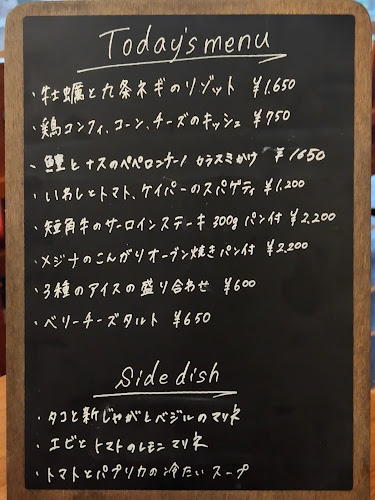 Today's menu
・牡蠣と九条ネギのリゾット ¥1.650
・鶏コンフィ、コーン、チーズのキッシュ ¥750
・鱧とナスのペペロンチーノ カラスミがけ ¥1650
・いわしとトマト、ケイパーのスパゲティ ¥1.200
・短角牛のサーロインステーキ 300g パン付 ¥2,200
・メジナのこんがりオーブン焼き パン付 ¥2,200
・3種のアイスの盛り合わせ ¥600
・ベリーチーズタルト ¥650
Side dish
・タコと新じゃがとバジルのマリネ
・エビとトマトのレモンマリネ
・トマトとパプリカの冷たいスープ